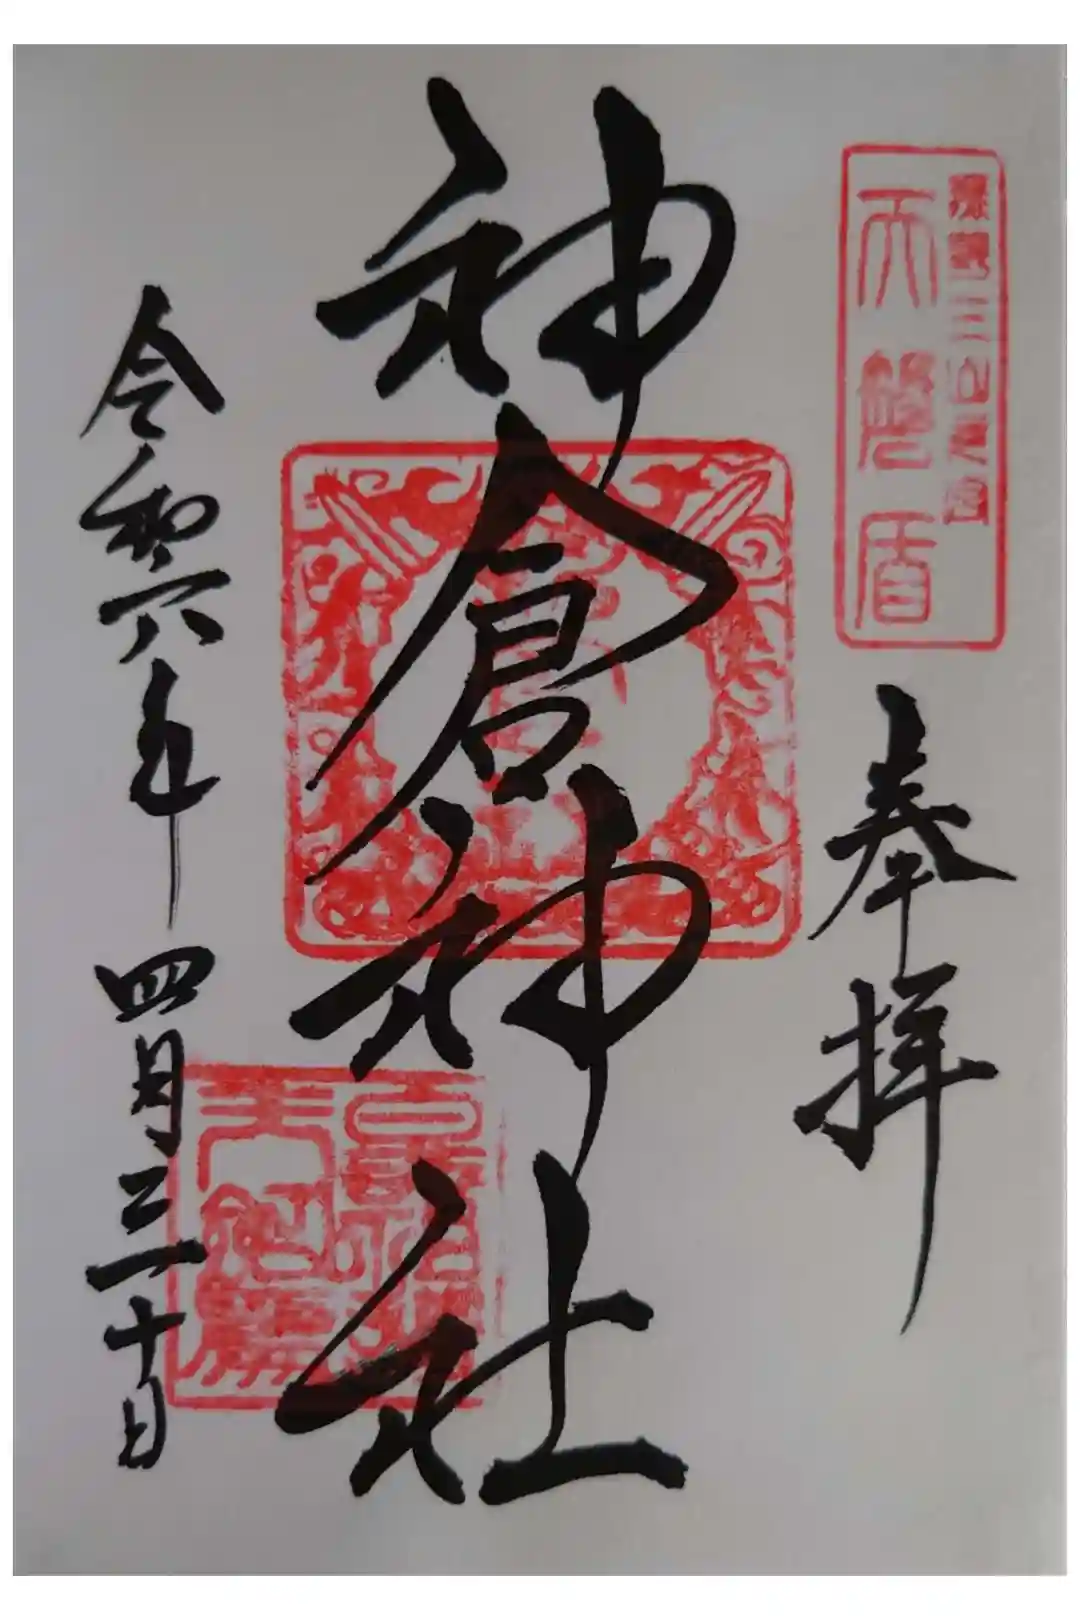 天磐盾
奉拝
神倉神社
令和六年四月三十日